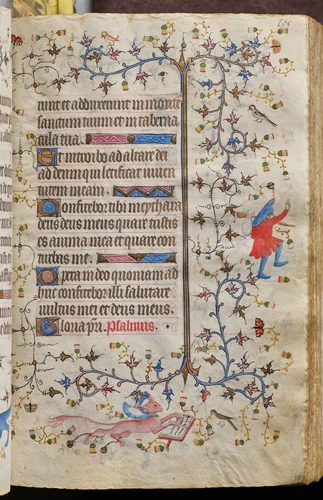 runt et adduxerunt in monte
sanctum tuum et in taberna
cula tua.
Et introibo ad altare dei
ad deum qui letificat iuven
tutem meam.
Confitebor tibi in cythara
deus deus meus quare tristis
es anima mea et quare con
turbas me.
Spera in deo quoniam ad
huc confitebor illi salutare
vultus mei et deus meus.
Gloria pri. Psalmus.